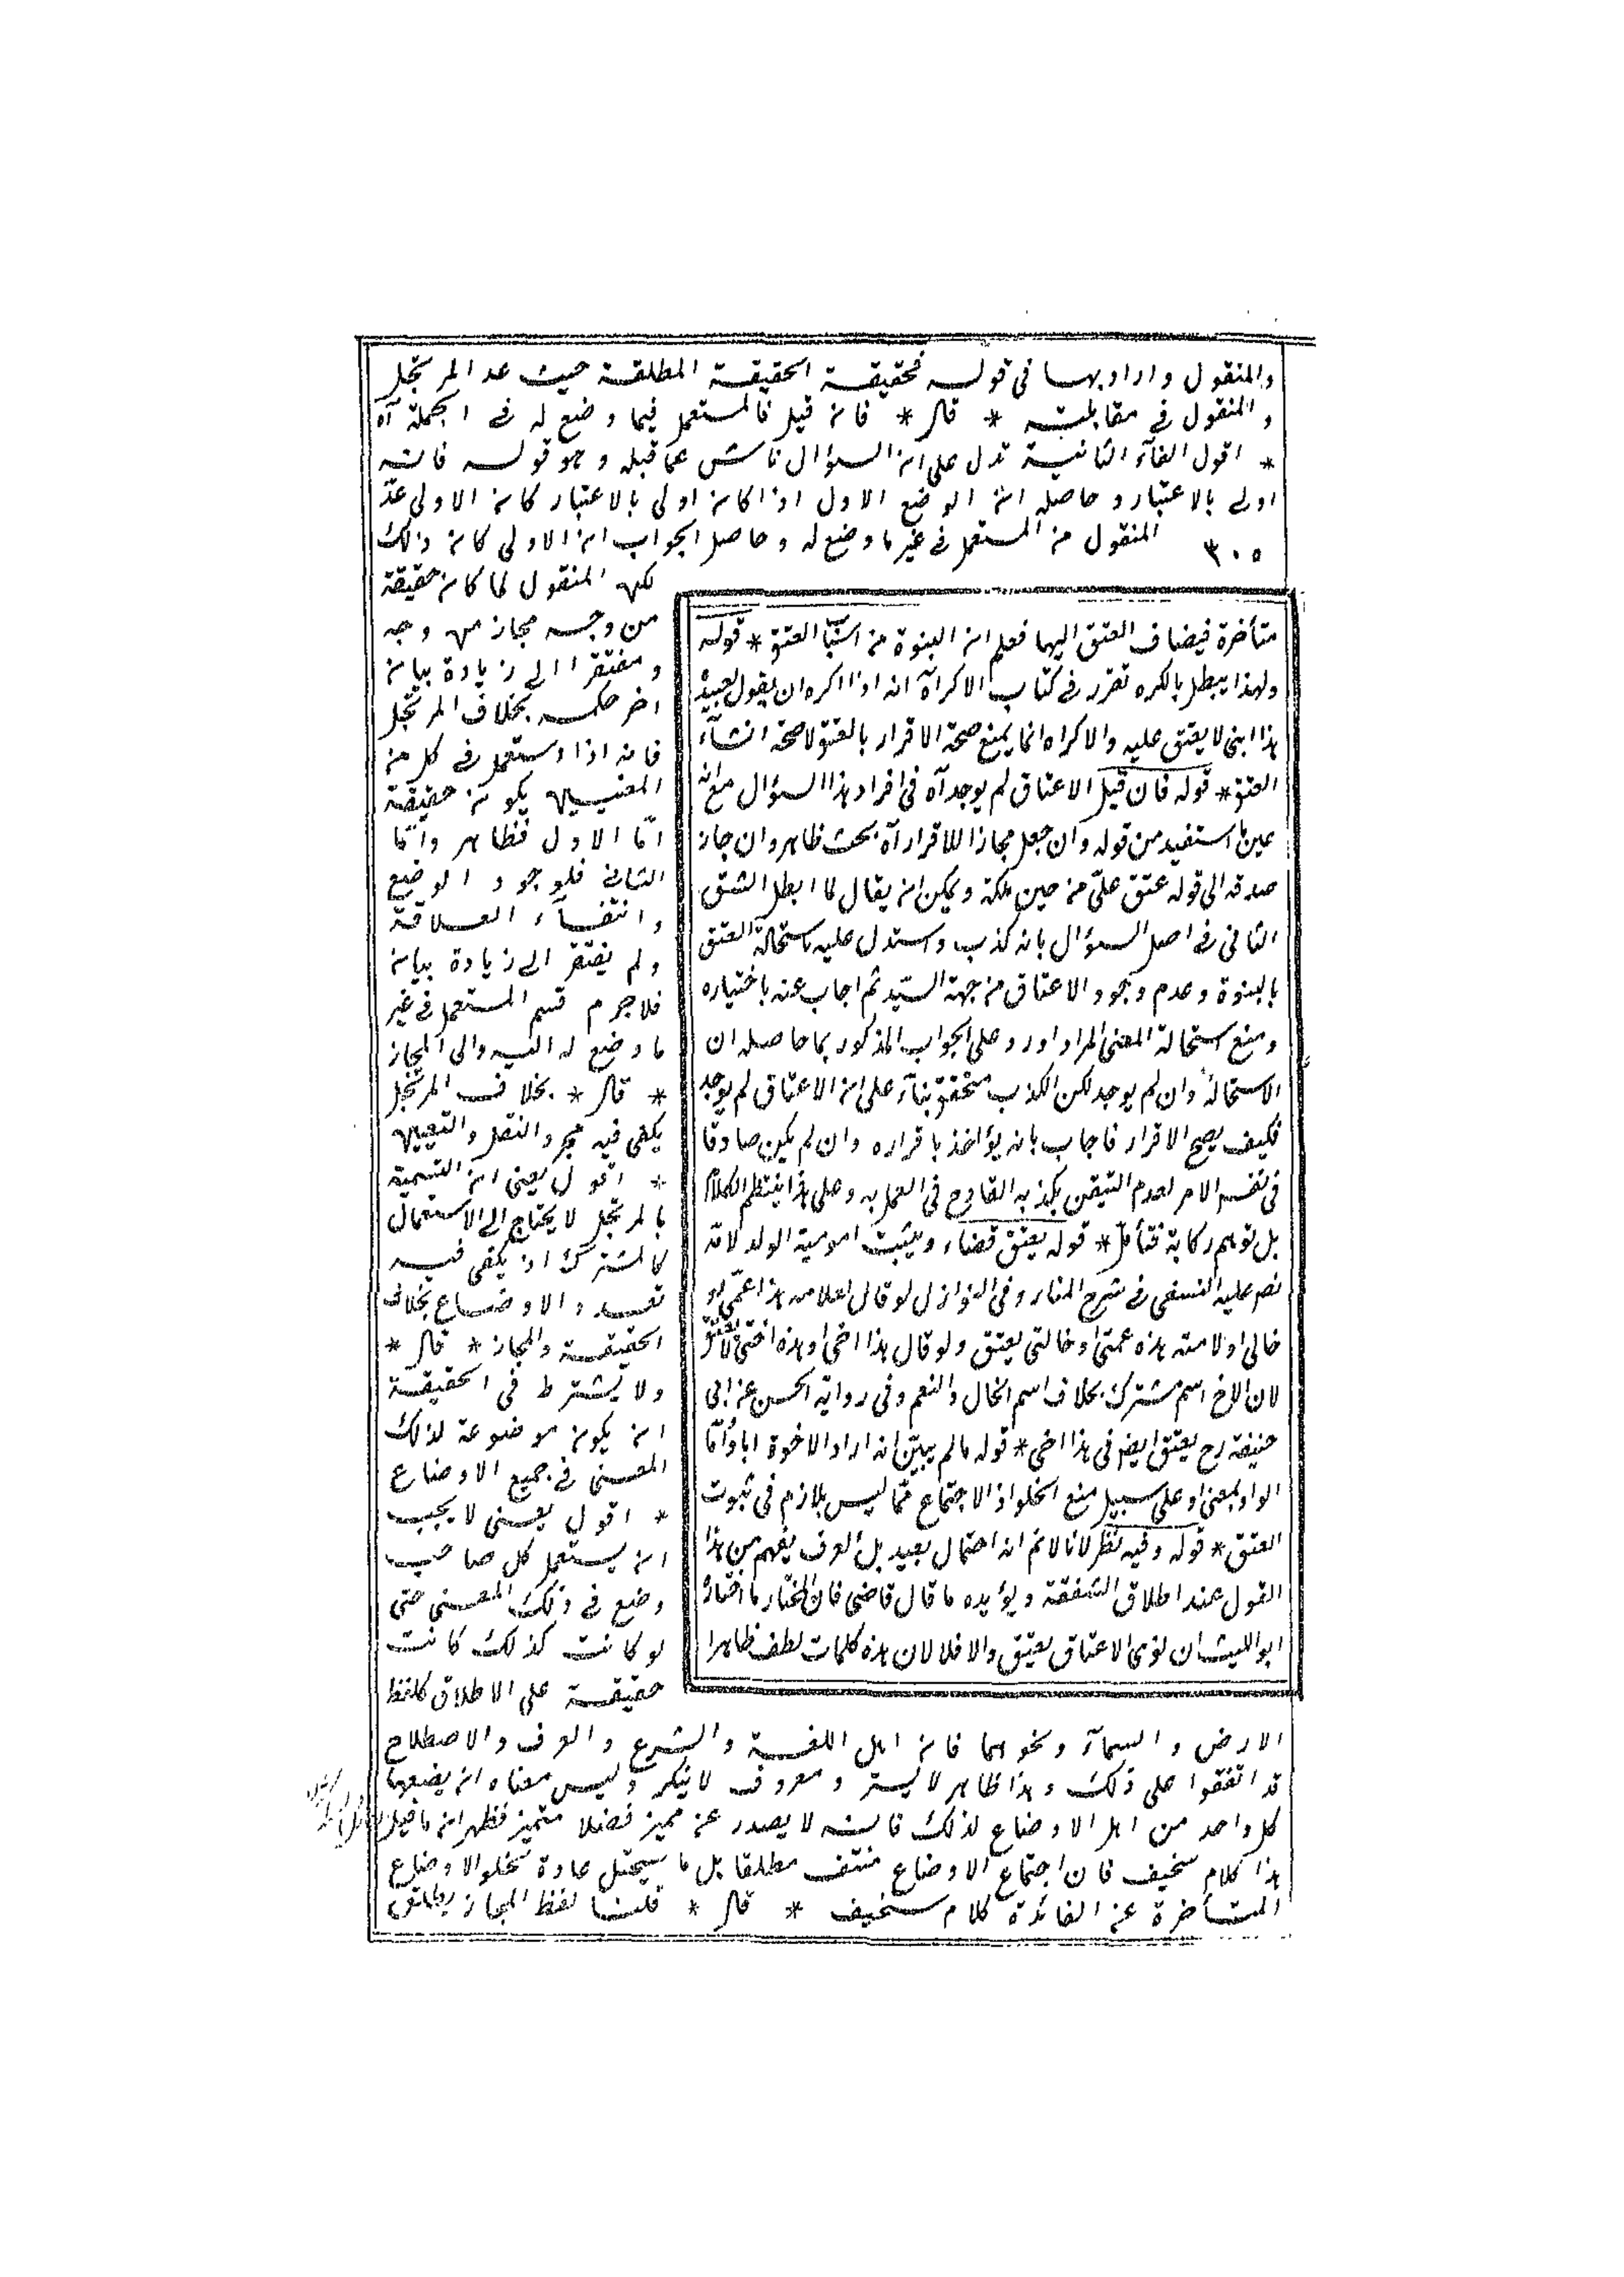 والمنقول واراد بها فى قوله فحقيقة الحقيقة المطلقة حيث عد المرتجل
والمنقول فى مقابلته * قال * فان قيل فالمستعمل فيما وضع له فى الجملة آه
* اقول الفآء الثانية تدل على ان السؤال ناش عما قبله وهو قوله فانه
اولى بالاعتبار وحاصله ان الوضع الاول اذا كان اولى بالاعتبار كان الاولى عدّ
المنقول من المستعمل فى غير ما وضع له وحاصل الجواب ان الاولى كان ذلك
٣٠٥
لكن المنقول لما كان حقيقة
من وجه مجاز من وجه
ومفتقرا الى زيادة بيان
اخر حكمه بخلاف المرتجل
فانه اذا استعمل فى كل من
المعنيين يكون حقيقة
امّا الاول فظاهر وامّا
الثانى فلوجود الوضع
وانتفآء العلاقة
ولم يفتقر الى زيادة بيان
فلاجرم قسم المستعمل فى غير
ما وضع له اليه والى المجاز
* قال * بخلاف المرتجل
يكفى فيه مجرد النقل والتعيين
* اقول يعنى ان التسمية
بالمرتجل لا يحتاج الى الاستعمال
كالمشترك اذ يكفى فيه
تعدد الاوضاع بخلاف
الحقيقة والمجاز * قال *
ولا يشترط فى الحقيقة
ان يكون موضوعة لذلك
المعنى فى جميع الاوضاع
* اقول يعنى لا يجب
ان يستعمل كل صاحب
وضع فى ذلك المعنى حتى
لو كانت كذلك كانت
حقيقة على الاطلاق كلفظ
الارض والسمآء ونحوهما فان اهل اللغة والشرع والعرف والاصطلاح
قد اتفقوا على ذلك وهذا ظاهر لا يستر ومعروف لا ينكر وليس معناه ان يضعها
كل واحد من اهل الاوضاع لذلك فانه لا يصدر عن مميز فضلا متميز فظهر ان ما قيل
هذا كلام سخيف فان اجتماع الاوضاع منتف مطلقا بل ما سيحتل عادة لخلو الاوضاع
المتأخرة عن الفائدة كلام سخيف * قال * قلنا لفظ المجاز يطلق
متأخرة فيضاف العتق اليها فعلم ان البنوة من اسباب العتق * قوله
ولهذا يبطل بالكره تقرر فى كتاب الاكراه انه اذا اكره ان يقول لعبده
هذا ابنى لا يعتق عليه والاكراه انما يمنع صحة الاقرار بالعتق لا صحة انشآء
العتق * قوله فان قيل الاعتاق لم يوجد آه فى افراد هذا السؤال مع انه
عين ما استفيد من قوله وان جعل مجازا للاقرار آه بحث ظاهر وان جاز
صدقه الى قوله عتق علىّ من حين ملكته ويمكن ان يقال لما ابطل الشق
الثانى فى اصل السؤال بانه كذب واستدل عليه باستحالة العتق
بالبنوة وعدم وجود الاعتاق من جهة السيّد ثم اجاب عنه باختياره
ومنع استحالة المعنى المراد اورد على الجواب المذكور بما حاصله ان
الاستحالة وان لم يوجد لكن الكذب متحقق بنآء على ان الاعتاق لم يوجد
فكيف يصح الاقرار فاجاب بانه يؤاخذ باقراره وان لم يكن صادقا
فى نفس الامر لعدم التيقن بكذبه القادح فى العمل به وعلى هذا ينتظم الكلام
بل توهم ركابة فتأمل * قوله يعتق قضاء ويثبت امومية الولد لانه
نص عليه النسفى فى شرح المنار وفى النوازل لو قال لغلامه هذا عمّى او
خالى او لامته هذه عمتى او خالتى يعتق ولو قال هذا اخى او هذه اختى لا يعتق
لان الاخ اسم مشترك بخلاف اسم الخال والعم وفى رواية الحسن عن ابى
حنيفة رح يعتق ايضا فى هذا اخى * قوله ما لم يبيّن انه اراد الاخوة ابا وامّا
الواو بمعنى او على سبيل منع الخلو اذ الاجتماع ممّا ليس بلازم فى ثبوت
العتق * قوله وفيه نظر لانا لا نم انه احتمال بعيد بل العرف يفهم من هذا
القول عند اطلاق الشفقة ويؤيده ما قال قاضى خان المختار ما اختاره
ابو الليث ان نوى الاعتاق يعتق والا فلا لان هذه كلمات لطف ظاهرا